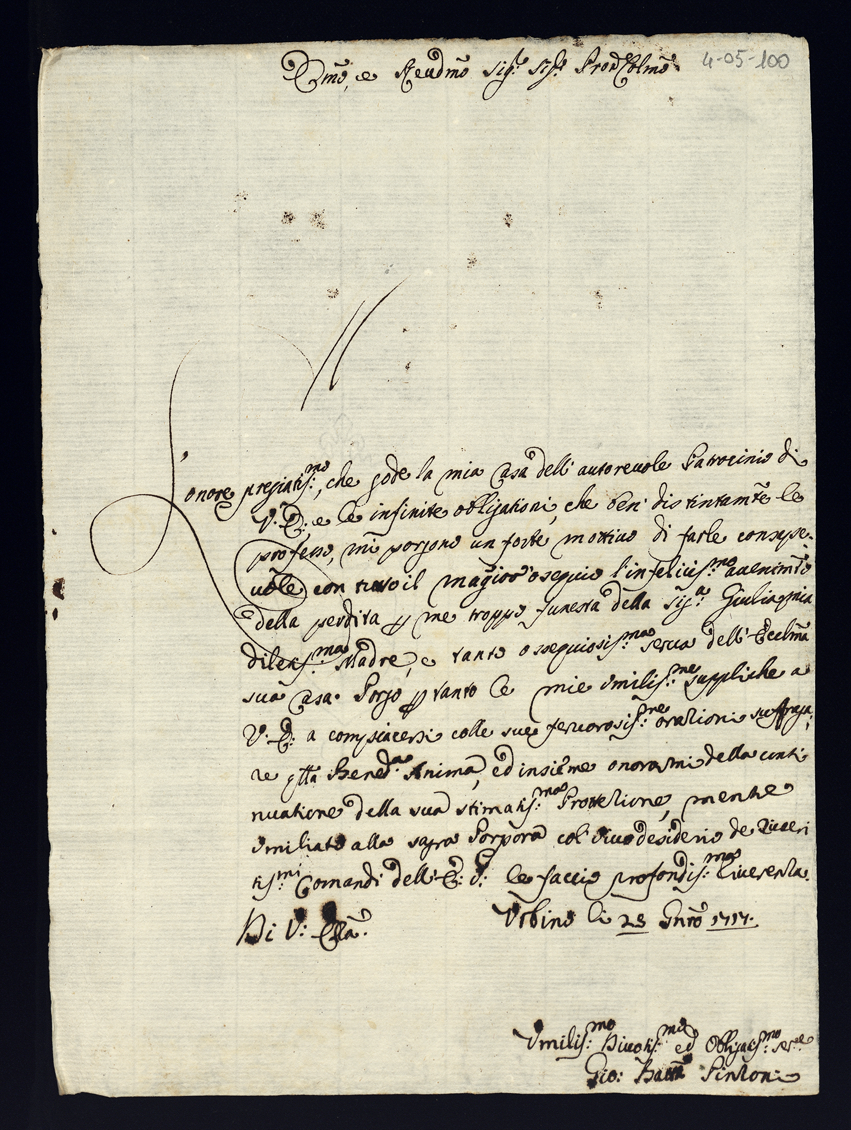 4-05-100
Emo, e Reudmo Sigr: Sigr: Pron Colmo
L'onore pregiatis:mo, che gode la mia Casa dell'autoreuole Patrocinio di
V: E:, e le infinite obbligationi, che ben distintamte le
professo, mi porgono un forte mottiuo di farle consape-
uole con tutto il maggior osequio l'infelicis:mo auenimto
della perdita per me troppo funesta della Sigra
dilettis:ma Madre, e tanto ossequiosis:ma serua dell'Eccelma
sua Casa. Porgo per tanto le mie umilis:me suppliche a
V: E: a compiacersi colle sue feruorosis:me orationi suffraga-
re qtta Beneda Anima, ed insieme onorarmi della conti
nuatione della sua stimatis:ma Protetione, mentre
umiliato alla sagra Porpora col viuo desiderio de riueri
tis:mi Comandi dell'E: V: le faccio profondis:ma riuerenza.
Di V: Emza: Urbino li 23 Gnro 1717.
Umilis:mo Diuotis:mo ed Obbligatis:mo serre
Gio: Batta